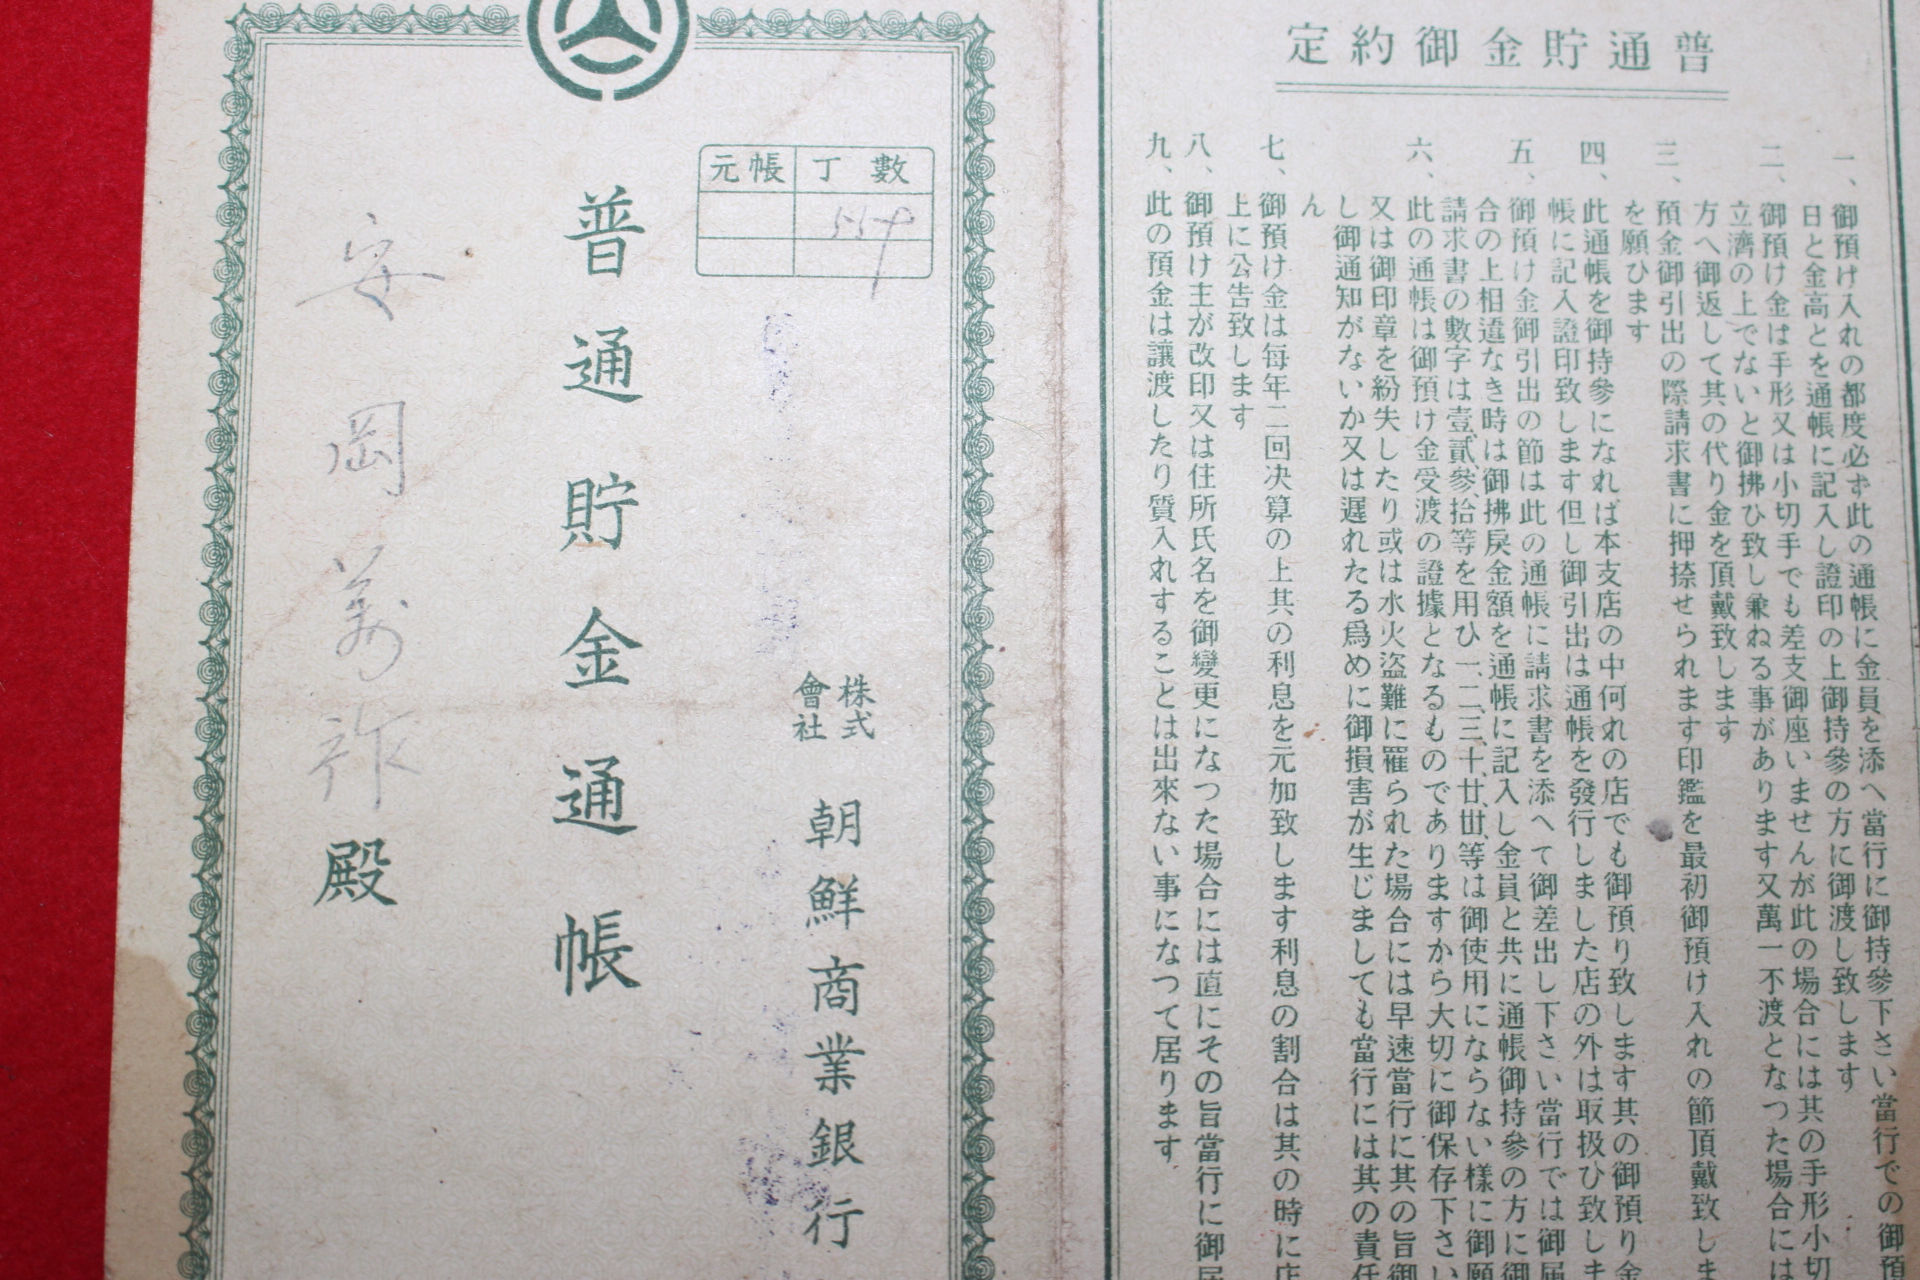 普通貯金御約定
一、御預け入れの都度必ず此の通帳に金員を添へ當行に御持參下さい當行での御預
日と金高とを通帳に記入し證印の上御持參の方に御渡し致します
二、御預け金は手形又は小切手でも差支御座いませんが此の場合には其の手形小切
立濟の上でないと御拂ひ致し兼ねる事があります又萬一不渡となつた場合には
方へ御返して其の代り金を頂戴致します
三、預金御引出の際請求書に押捺せられます印鑑を最初御預け入れの節頂戴致しま
を願ひます
四、此通帳を御持參になれば本支店の中何れの店でも御預り致します其の御預り金
帳に記入證印致します但し御引出は通帳を發行しました店の外は取扱ひ致しま
五、御預け金御引出の節は此の通帳に請求書を添へて御差出し下さい當行では御届
合の上相違なき時は御拂戻金額を通帳に記入し金員と共に通帳御持參の方に御
請求書の數字は壹、貳、參、拾等を用ひ一、二、三、十、廿、丗、等は御使用にならない樣に御願
六、此の通帳は御預け金受渡の證據となるものでありますから大切に御保存下さい
又は御印章を紛失したり或は水火盜難に罹られた場合には早速當行に其の旨御
し御通知がないか又は遲れたる爲めに御損害が生じましても當行には其の責任
ん
七、御預け金は每年二回决算の上其の利息を元加致します利息の割合は其の時に店
上に公告致します
八、御預け主が改印又は住所氏名を御變更になつた場合には直にその旨當行に御届
九、此の預金は讓渡したり質入れすることは出來ない事になつて居ります
元帳 丁數
554
株式會社 朝鮮商業銀行
普通貯金通帳
安岡萬祚殿